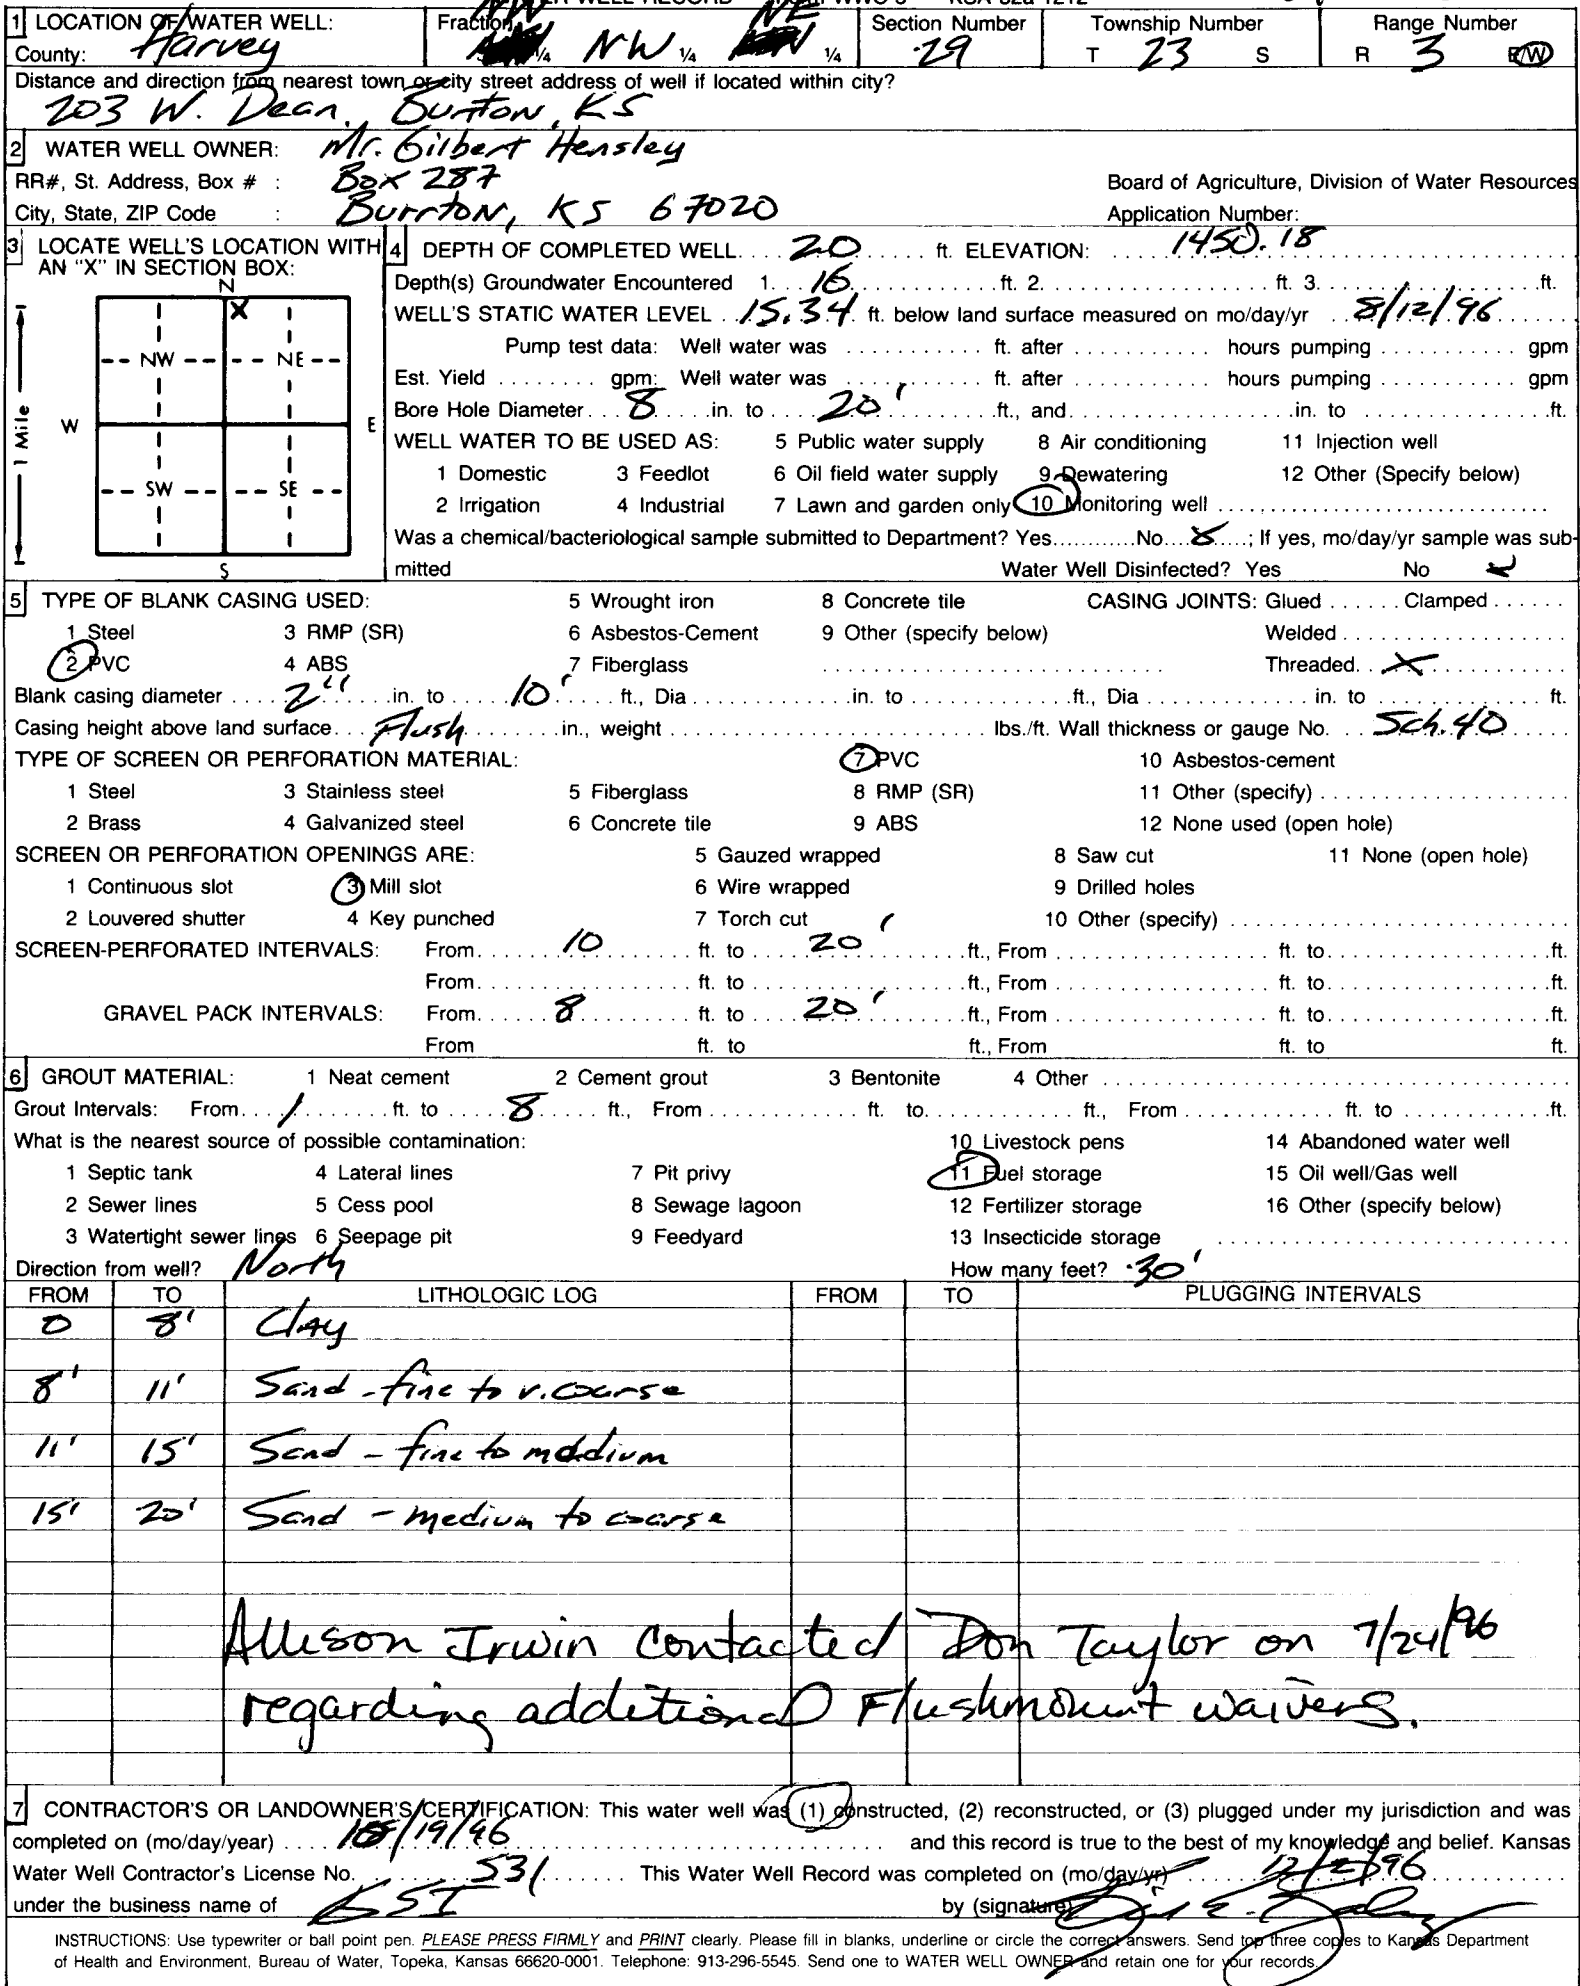 WELL RECORD WWC-5 KSA 82a-1212
1 LOCATION OF WATER WELL: Fraction NW NE Section Number Township Number Range Number
County: Harvey ¼ NW ¼ ¼ 29 T 23 S R 3 E/W
Distance and direction from nearest town or city street address of well if located within city?
203 W. Dean, Burrton, KS
2 WATER WELL OWNER: Mr. Gilbert Hensley
RR#, St. Address, Box # : Box 287 Board of Agriculture, Division of Water Resources
City, State, ZIP Code : Burrton, KS 67020 Application Number:
3 LOCATE WELL'S LOCATION WITH AN "X" IN SECTION BOX:
N
X
NW NE
W E
1 Mile
SW SE
S
4 DEPTH OF COMPLETED WELL.... 20 ft. ELEVATION: 1450.18
Depth(s) Groundwater Encountered 1. 16 ft. 2. ft. 3. ft.
WELL'S STATIC WATER LEVEL 15.34 ft. below land surface measured on mo/day/yr 8/12/96
Pump test data: Well water was ft. after hours pumping gpm
Est. Yield gpm: Well water was ft. after hours pumping gpm
Bore Hole Diameter 8 in. to 20' ft., and in. to ft.
WELL WATER TO BE USED AS: 5 Public water supply 8 Air conditioning 11 Injection well
1 Domestic 3 Feedlot 6 Oil field water supply 9 Dewatering 12 Other (Specify below)
2 Irrigation 4 Industrial 7 Lawn and garden only 10 Monitoring well
Was a chemical/bacteriological sample submitted to Department? Yes No X ; If yes, mo/day/yr sample was sub-
mitted Water Well Disinfected? Yes No
5 TYPE OF BLANK CASING USED: 5 Wrought iron 8 Concrete tile CASING JOINTS: Glued Clamped
1 Steel 3 RMP (SR) 6 Asbestos-Cement 9 Other (specify below) Welded
2 PVC 4 ABS 7 Fiberglass Threaded X
Blank casing diameter 2" in. to 10' ft., Dia in. to ft., Dia in. to ft.
Casing height above land surface Flush in., weight lbs./ft. Wall thickness or gauge No. Sch. 40
TYPE OF SCREEN OR PERFORATION MATERIAL: 7 PVC 10 Asbestos-cement
1 Steel 3 Stainless steel 5 Fiberglass 8 RMP (SR) 11 Other (specify)
2 Brass 4 Galvanized steel 6 Concrete tile 9 ABS 12 None used (open hole)
SCREEN OR PERFORATION OPENINGS ARE: 5 Gauzed wrapped 8 Saw cut 11 None (open hole)
1 Continuous slot 3 Mill slot 6 Wire wrapped 9 Drilled holes
2 Louvered shutter 4 Key punched 7 Torch cut 10 Other (specify)
SCREEN-PERFORATED INTERVALS: From 10 ft. to 20' ft., From ft. to ft.
From ft. to ft., From ft. to ft.
GRAVEL PACK INTERVALS: From 8 ft. to 20' ft., From ft. to ft.
From ft. to ft., From ft. to ft.
6 GROUT MATERIAL: 1 Neat cement 2 Cement grout 3 Bentonite 4 Other
Grout Intervals: From 1 ft. to 8 ft., From ft. to ft., From ft. to ft.
What is the nearest source of possible contamination: 10 Livestock pens 14 Abandoned water well
1 Septic tank 4 Lateral lines 7 Pit privy 11 Fuel storage 15 Oil well/Gas well
2 Sewer lines 5 Cess pool 8 Sewage lagoon 12 Fertilizer storage 16 Other (specify below)
3 Watertight sewer lines 6 Seepage pit 9 Feedyard 13 Insecticide storage
Direction from well? North How many feet? 30'
FROM TO LITHOLOGIC LOG FROM TO PLUGGING INTERVALS
0 8' Clay
8' 11' Sand - fine to v. coarse
11' 15' Sand - fine to medium
15' 20' Sand - medium to coarse
Allison Irwin contacted Don Taylor on 7/24/96
regarding additional Flushmount waivers.
7 CONTRACTOR'S OR LANDOWNER'S CERTIFICATION: This water well was (1) constructed, (2) reconstructed, or (3) plugged under my jurisdiction and was
completed on (mo/day/year) /19/96 and this record is true to the best of my knowledge and belief. Kansas
Water Well Contractor's License No. 531 This Water Well Record was completed on (mo/day/yr) 12/2/96
under the business name of GSI by (signature)
INSTRUCTIONS: Use typewriter or ball point pen. PLEASE PRESS FIRMLY and PRINT clearly. Please fill in blanks, underline or circle the correct answers. Send top three copies to Kansas Department
of Health and Environment, Bureau of Water, Topeka, Kansas 66620-0001. Telephone: 913-296-5545. Send one to WATER WELL OWNER and retain one for your records.